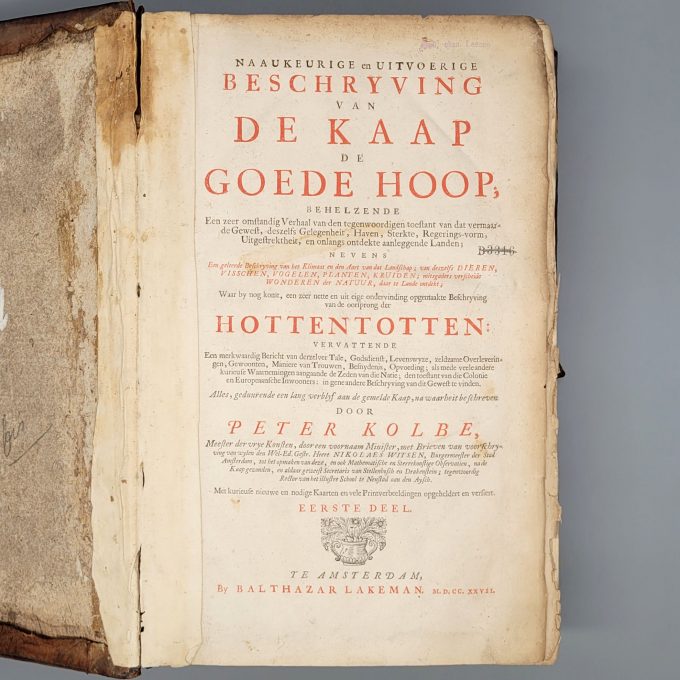 NAAUKEURIGE en UITVOERIGE
BESCHRYVING
VAN
DE KAAP
DE
GOEDE HOOP,
BEHELZENDE
Een zeer omstandig Verhaal van den tegenwoordigen toestant van dat vermaar-
de Geweſt, deszelfs Gelegenheit, Haven, Sterkte, Regerings-vorm,
Uitgeſtrektheit, en onlangs ontdekte aanleggende Landen;
B3346
NEVENS
Een geleerde Beſchryving van het Klimaat en den Aart van dat Landſchap; van deszelfs DIEREN,
VISSCHEN, VOGELEN, PLANTEN, KRUIDEN; mitsgaders verſcheide
WONDEREN der NATUUR, daar te Lande ontdekt;
Waar by nog komt, een zeer nette en uit eige ondervinding opgemaakte Beſchryving
van de oorſprong der
HOTTENTOTTEN:
VERVATTENDE
Een merkwaardig Bericht van derzelver Tale, Godsdienſt, Levenswyze, zeldzame Overleverin-
gen, Gewoonten, Maniere van Trouwen, Beſnydenis, Opvoeding; als mede vele andere
kurieuſe Waarnemingen aangaande de Zeden van die Natie; den toeſtant van die Colonie
en Europeaanſche Inwooners: in gene andere Beſchryving van dit Geweſt te vinden.
Alles, geduurende een lang verblyf aan de gemelde Kaap, na waarheit beſchreven
DOOR
PETER KOLBE,
Meeſter der vrye Konſten, door een voornaam Miniſter, met Brieven van voorſchry-
ving van wylen den Wel-Ed. Geſtr. Heere NIKOLAES WITSEN, Burgermeeſter der Stad
Amſterdam, tot het opmaken van deze, en ook Mathematiſche en Sterrekonſtige Obſervatien, na de
Kaap gezonden, en aldaar geweeſt Secretaris van Stellenboſch en Drakenſtein; tegenwoordig
Rector van het illuſtre School te Neuſtad aan den Ayſch.
Met kurieuſe nieuwe en nodige Kaarten en vele Printverbeeldingen opgeheldert en verſiert.
EERSTE DEEL.
TE AMSTERDAM,
By BALTHAZAR LAKEMAN. M.D.CC.XXVII.